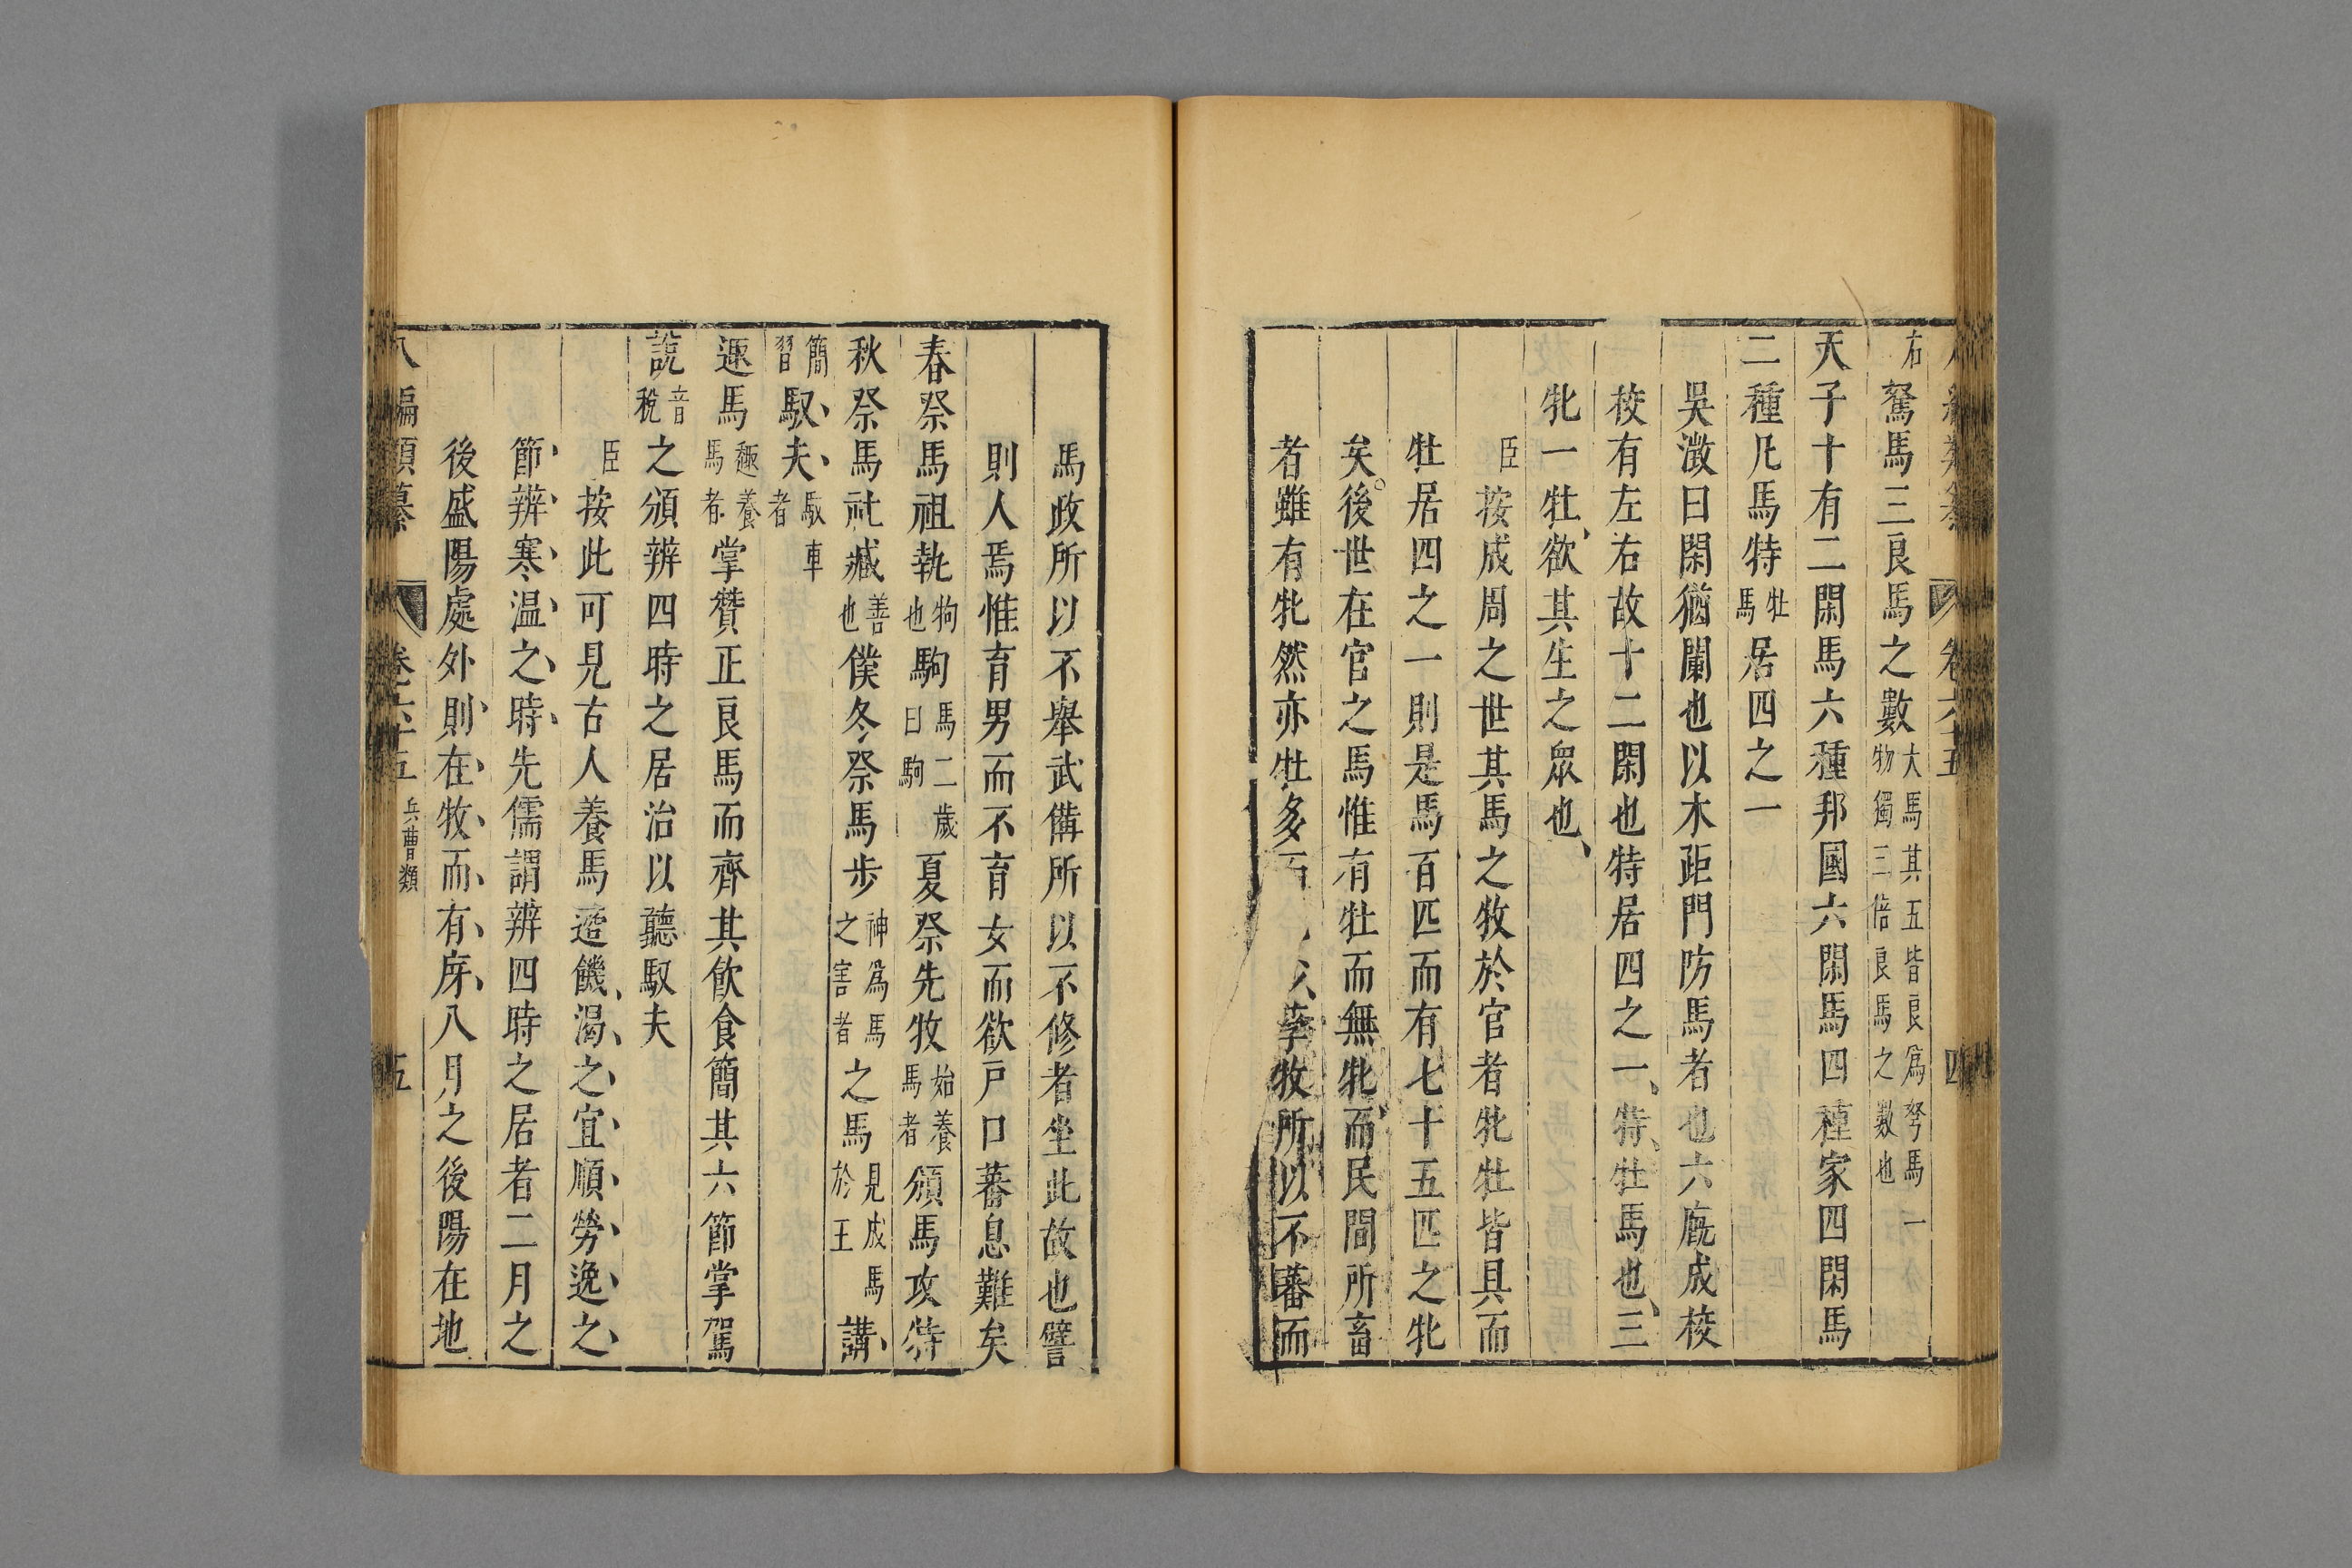 右駑馬三良馬之數大馬其五皆良爲駑馬一物獨三倍良馬之數也
天子十有二閑馬六種邦國六閑馬四種家四閑馬
二種凡馬特牡馬居四之一
吳澂曰閑猶闌也以木距門防馬者也六廐成校
校有左右故十二閑也特居四之一特牡馬也三
牝一牡欲其生之眾也
臣按成周之世其馬之牧於官者牝牡皆具而
牡居四之一則是馬百匹而有七十五匹之牝
矣後世在官之馬惟有牡而無牝而民間所畜
者雖有牝然亦牡多 孳牧所以不蕃而
卷六十五 四
馬政所以不舉武備所以不修者坐此故也譬
則人焉惟育男而不育女而欲戶口蕃息難矣
春祭馬祖執駒也駒馬二歲曰駒夏祭先牧始養馬者頒馬攻特
秋祭馬社臧善也僕冬祭馬步神爲馬之害者之馬見成馬於王講
簡習馭夫馭車者
趣馬趣養馬者掌贊正良馬而齊其飲食簡其六節掌駕
說音稅之頒辨四時之居治以聽馭夫
臣按此可見古人養馬適饑渴之宜順勞逸之
節辨寒温之時先儒謂辨四時之居者二月之
後盛陽處外則在牧而有庌八月之後陽在地
八編類纂 卷六十五 兵曹類 五